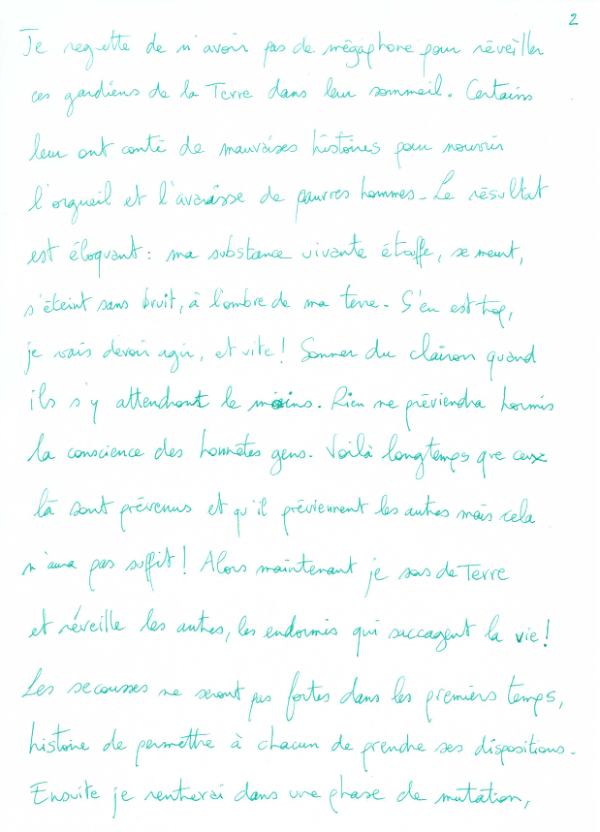 2
Je regrette de n'avoir pas de mégaphone pour réveiller
ces gardiens de la Terre dans leur sommeil. Certains
leur ont conté de mauvaises histoires pour nourrir
l'orgueil et l'avarisse de pauvres hommes. Le résultat
est éloquant : ma substance vivante étouffe, se meurt,
s'éteint sans bruit, à l'ombre de ma terre. S'en est trop,
je vais devoir agir, et vite ! Sonner du clairon quand
ils s'y attendront le moins. Rien ne préviendra hormis
la conscience des honnêtes gens. Voilà longtemps que ceux
là sont prévenus et qu'il préviennent les autres mais cela
n'aura pas suffit ! Alors maintenant je sors de Terre
et réveille les autres, les endormis qui saccagent la vie !
Les secousses ne seront pas fortes dans les premiers temps,
histoire de permettre à chacun de prendre ses dispositions.
Ensuite je rentrerai dans une phase de mutation,